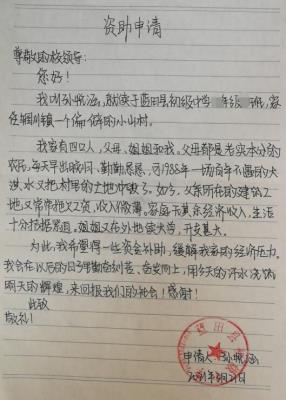 资助申请
尊敬的校领导:
您好!
我叫孙晓涵,就读于蓝田县初级中学 年级 班,家
住辋川镇一个偏僻的小山村。
我家有四口人,父母、姐姐和我。父母都是老实本分的
农民,每天早出晚归、勤勤恳恳,可1988年一场百年不遇的大
洪水又把村里的土地冲毁了。如今,父亲所在的建筑工
地又常常拖欠工资,收入微薄,家庭无其余经济收入,生活
十分拮据,而姐姐又在外地读大学,开支甚大。
为此,我希望得一些资金补助,缓解我家的经济压力。
我会在以后的日子里勤奋刻苦、奋发向上,用今天的汗水浇铸
明天的辉煌,来回报我们的社会!感谢!
此致
敬礼!
申请人:孙晓涵
21日